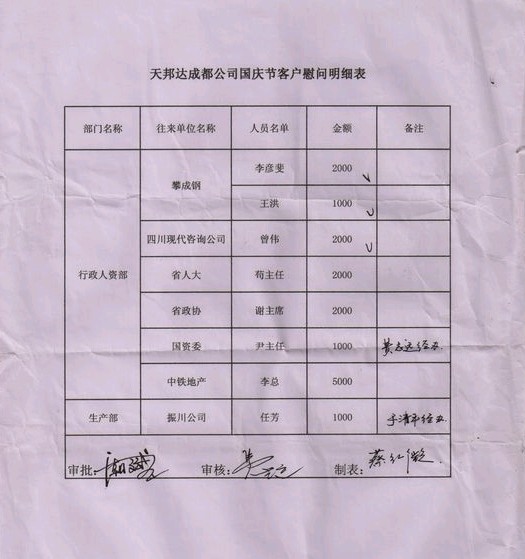 天邦达成都公司国庆节客户慰问明细表
部门名称 往来单位名称 人员名单 金额 备注
行政人资部 攀成钢 李彦斐 2000
王洪 1000
四川现代咨询公司 曾伟 2000
省人大 苟主任 2000
省政协 谢主席 2000
国资委 尹主任 1000 经办
中铁地产 李总 5000
生产部 振川公司 任芳 1000 经办
审批: 审核: 制表: 蔡红